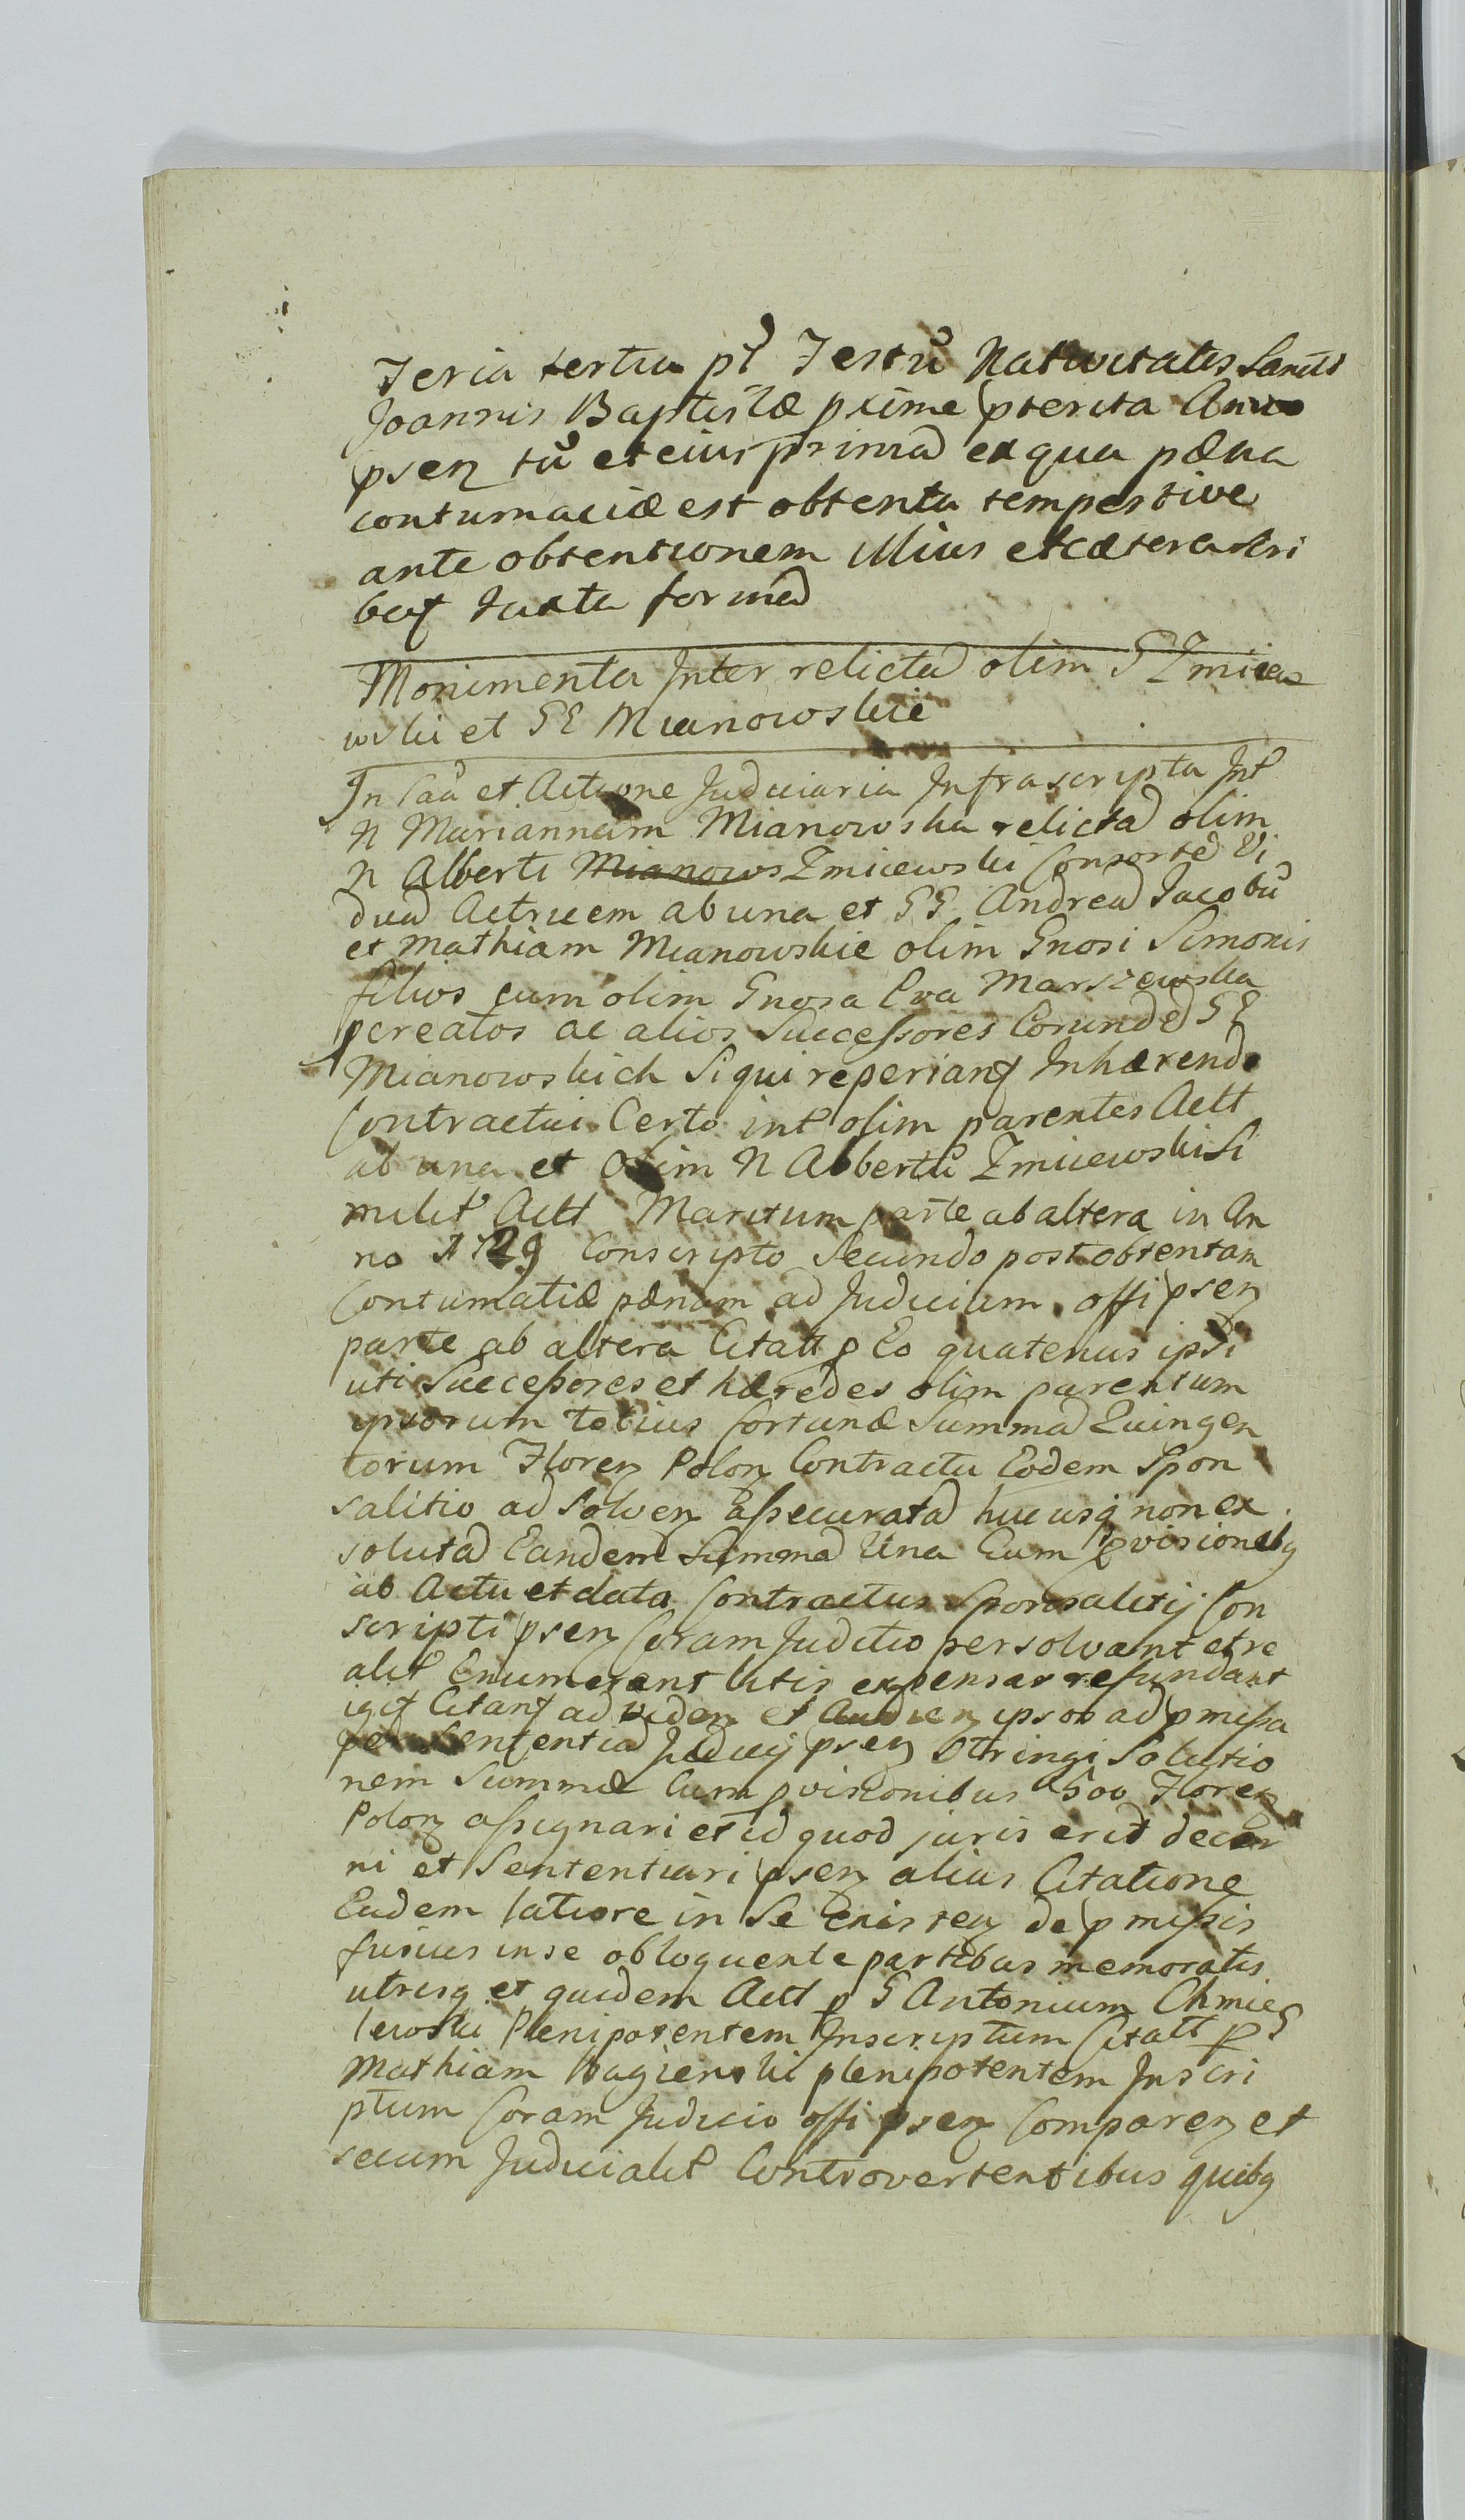 Feria tertia pt Festũ Nativitatis Sancti
Joannis Baptistæ pxime pterita Anno
psen tũ et eius primã ex qua pæna
contumaciæ est obtenta tempestive
ante obtentionem illius et cætera
Juxta formã
Monimenta Inter relictã olim G Zmiiew
wski et GG Mianowskie
In Cãa et Actione Judiciaria Infrascripta Int
N Mariannam Mianowska relictã olim
N Alberti Mianows Zmiiewski Consortẽ Vi
duã Actricem ab una et GG Andreã Jacobũ
et Mathiam Mianowskie olim Gnosi Simonis
filios cum olim Gnosa Eva Marszewska
pcreatos ac alios Successores Corundẽ GG
Mianowskich Si qui reperiant Inhærendo
Contractui Certo int olim parentes Actt
ab una et Olim N Albertũ Zmiiewski Si
milit Actt Maritum parte ab altera in An
no 1729 Conscripto Secundo post obtentam
Contumatiæ pænam ad Judicium offi psen
parte ab altera Citatt p Eo quatenus ipsi
uti Successores et hæredes olim parentum
ipsorum totius fortunæ Summã Quingen
torum Floren Polon Contractu Eodem Spon
salitio ad Solven assecuratã hucusq non ex
solutã Eandem Summã Una Cum pvisionibq
ab Actu et data Contractus Sponsalitij Con
scripti psen Coram Juditio persolvant et re
alit Enumerant litis expensas refundant
igit Citant ad viden et Audien ipsos ad pmissa
Sententiã Judicij psen Stringi Solutio
nem Summæ Cum pvisionibus 500 Floren
Polon assignari et id quod juris erit decer
ni et Sententiari psen alias Citatione
Eadem latiore in Se Existen de pmissis
fusius in se obloquente partibus memoratis
utrisq et quidem Actt p G Antonium Chmie
lewski Plenipotentem Inscriptum Citatt p G
Mathiam Bagienski plenipotentem Inscri
ptum Coram Judicio offi psen Comparen et
secum Judicialit Controvertentibus quibq